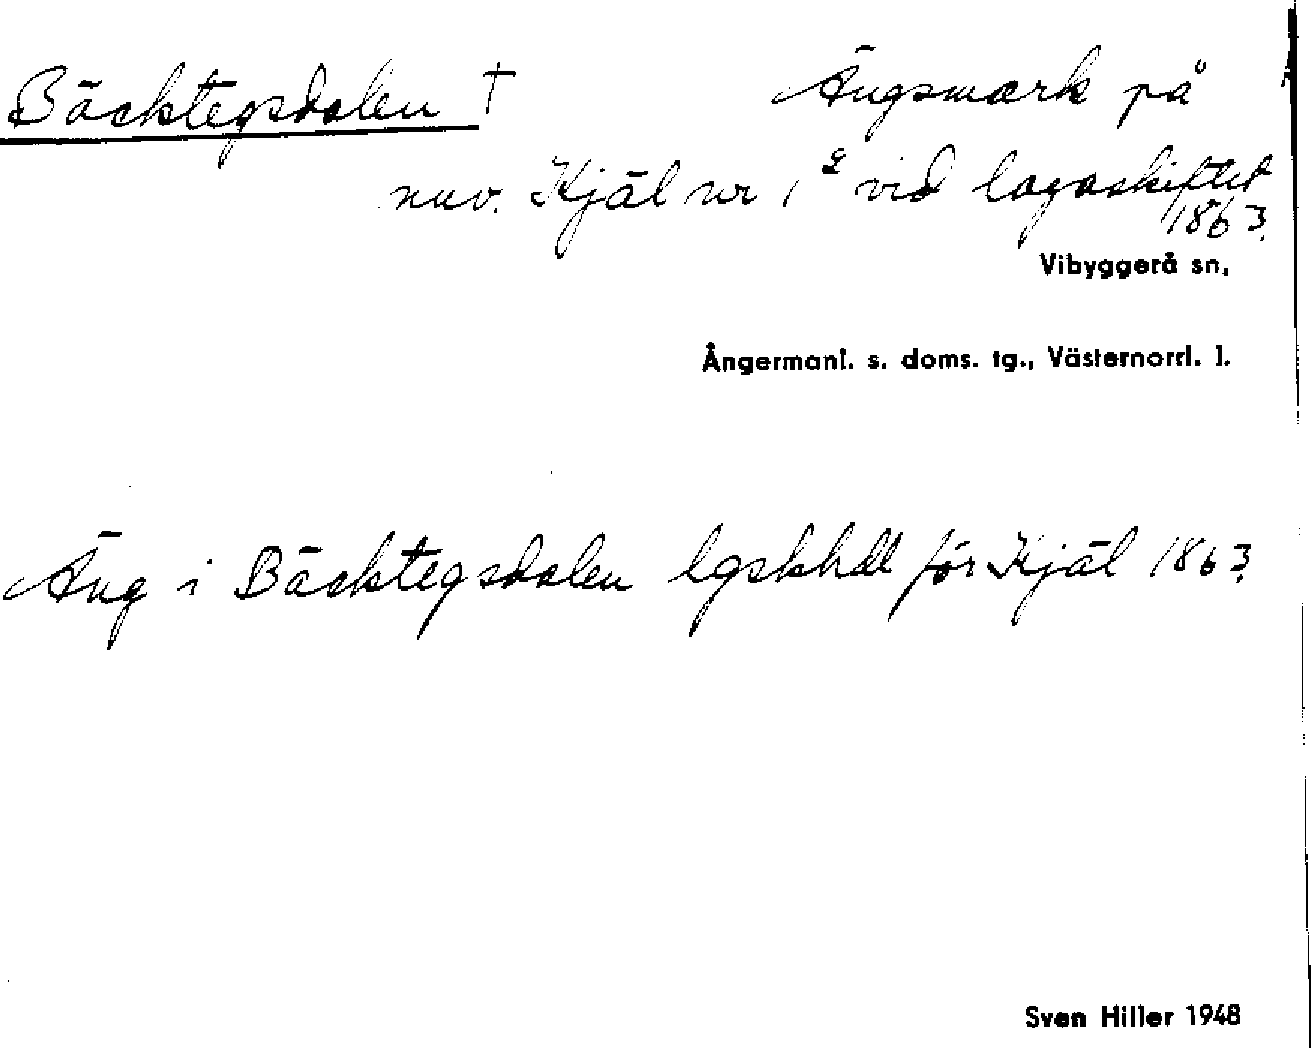 Bäcktegsdalen † Ängsmark på
nuv. Kjäl nr 1² vid lagaskiftet
1863.
Vibyggerå sn,
Ångermanl. s. doms. tg., Västernorrl. l.
Äng i Bäcktegsdalen lgskhdl för Kjäl 1863.
Sven Hiller 1948